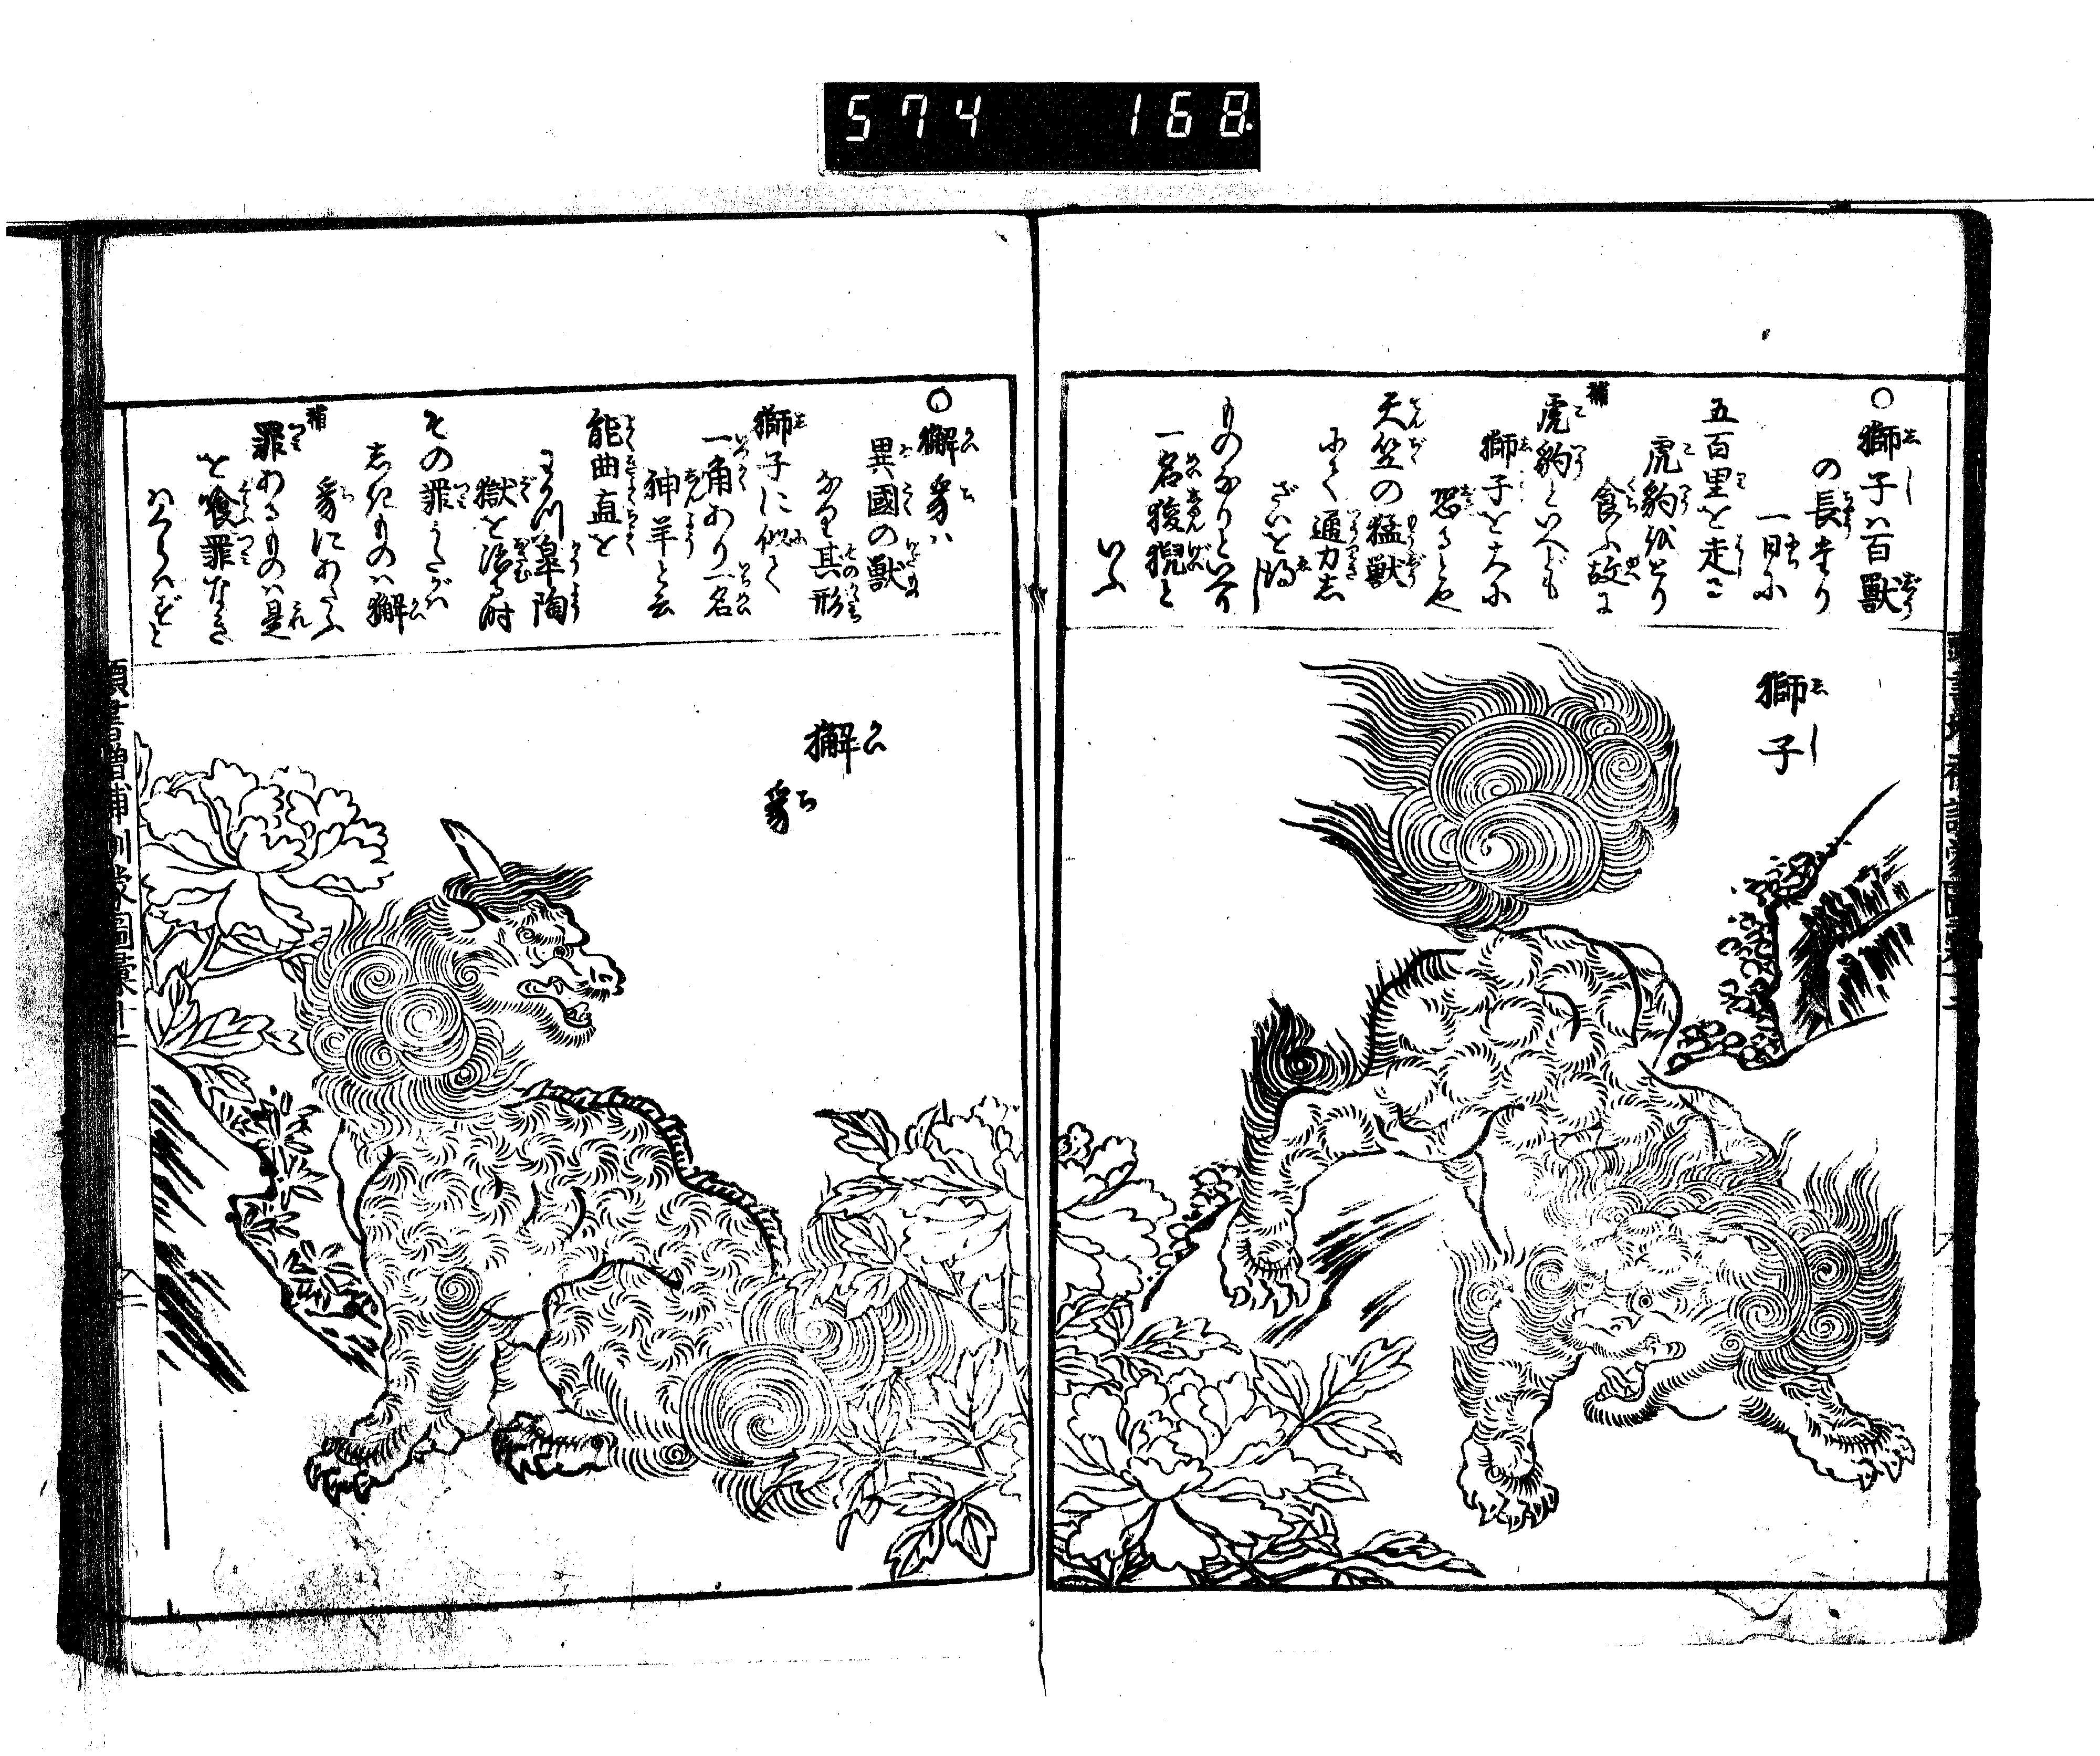 574 168.
○獅子ハ百獸
の長なり
一日に
五百里を走ニ
虎豹をとり
食ふ故に
補
虎豹といへども
獅子を大に
恐るゝ也
天竺の猛獸
にて通力し
ざいを得し
ものなりといへり
一名狻猊と
いふ
獅子
○獬豸ハ
異國の獸
なり其形
獅子に似て
一角あり一名
神羊と云
能曲直を
わかつ皐陶
獄を治る時
その罪うたがハ
しきものハ獬
豸にあたふ
補
罪あるものハ是
を喰罪なき
ハくらハずと
獬
豸
頭書増補訓蒙圖彙十二